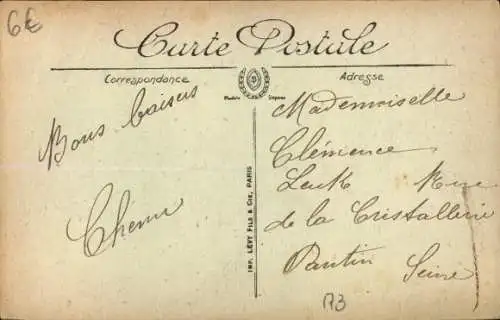 6€
Carte Postale
Correspondance
Adresse
Modèle Déposé
Bons baisers
IMP. LÉVY FILS & CIE, PARIS
Mademoiselle
Clémence
Rue
de la Cristallerie
Pantin Seine
A3